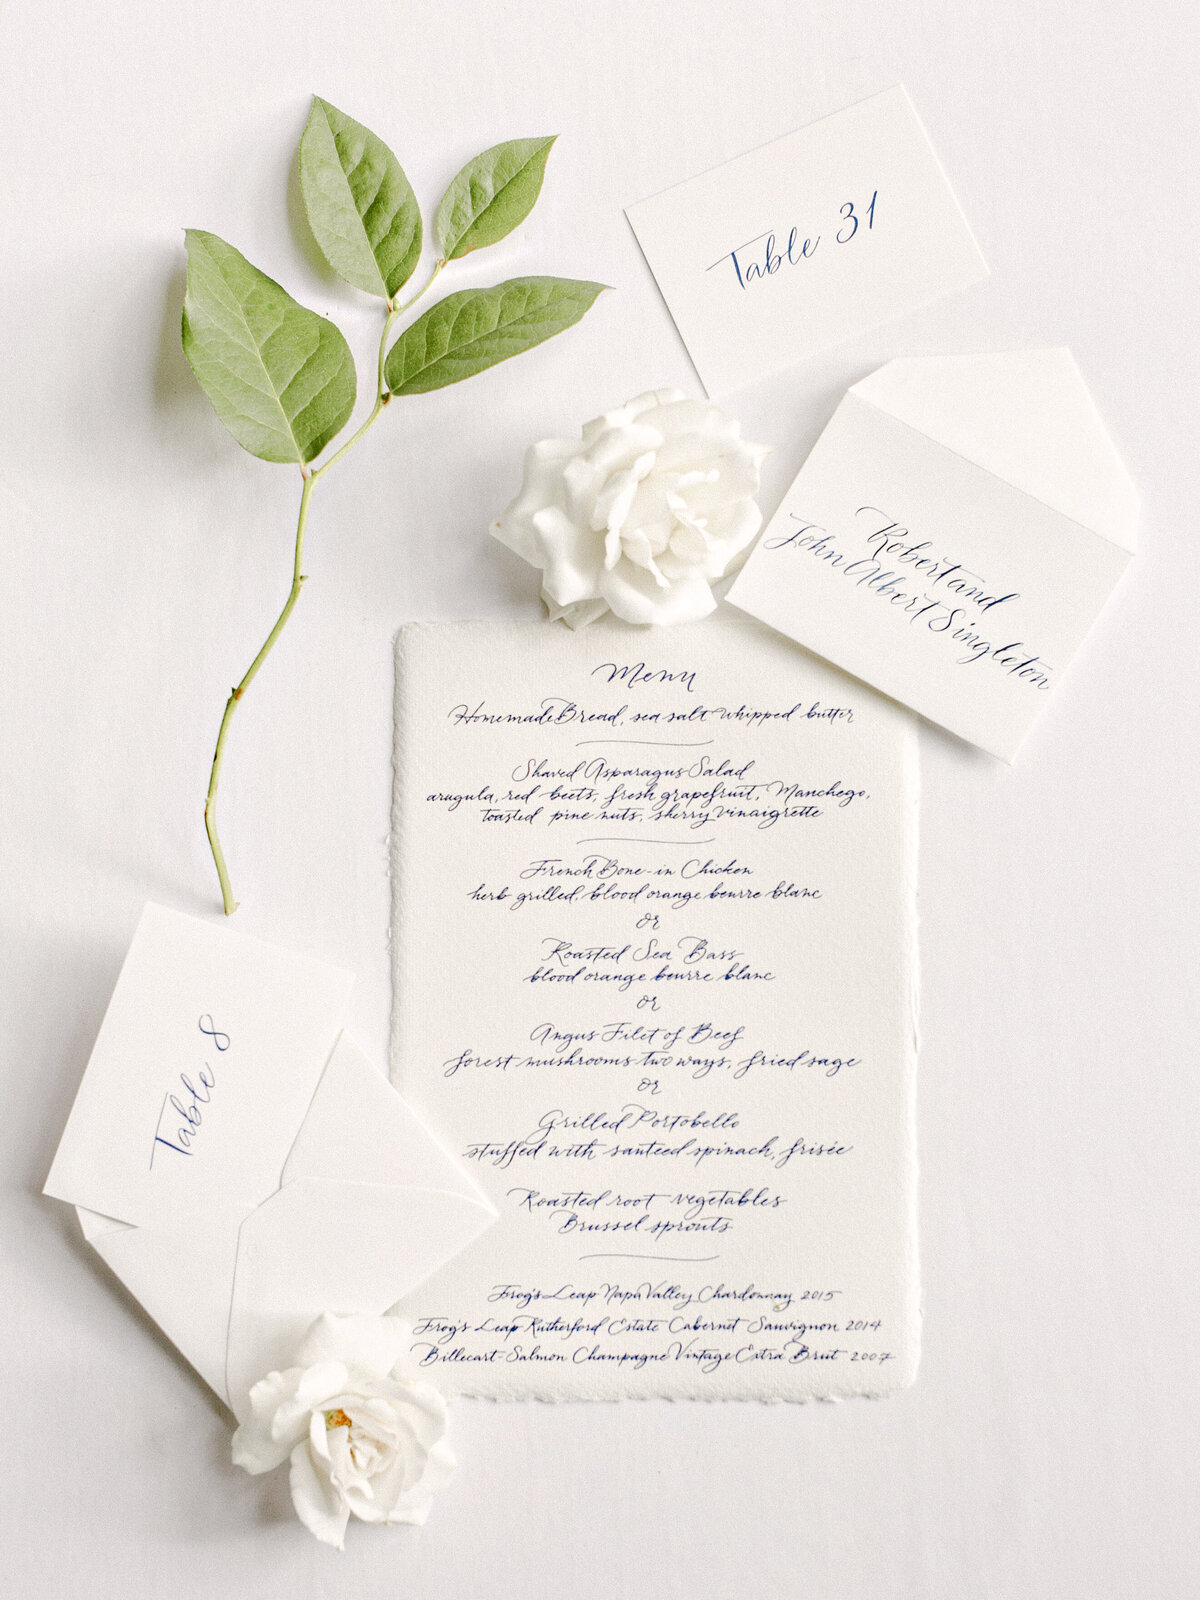 Table 31
Robert and
John Albert Singleton
Menu
Homemade Bread, sea salt whipped butter
Shaved Asparagus Salad
arugula, red beets, fresh grapefruit, Manchego,
toasted pine nuts, sherry vinaigrette
French Bone-in Chicken
herb grilled, blood orange beurre blanc
or
Roasted Sea Bass
blood orange beurre blanc
or
Angus Filet of Beef
forest mushrooms two ways, fried sage
or
Grilled Portobello
stuffed with sauteed spinach, frisée
Roasted root vegetables
Brussel sprouts
Frog's Leap Napa Valley Chardonnay 2015
Frog's Leap Rutherford Estate Cabernet Sauvignon 2014
Billecart-Salmon Champagne Vintage Extra Brut 2007
Table 8